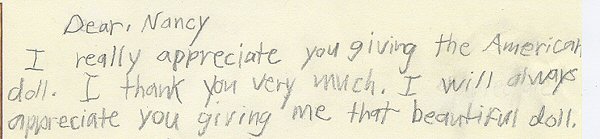 Dear, Nancy
I really appreciate you giving the American
doll. I thank you very much. I will always
appreciate you giving me that beautiful doll.